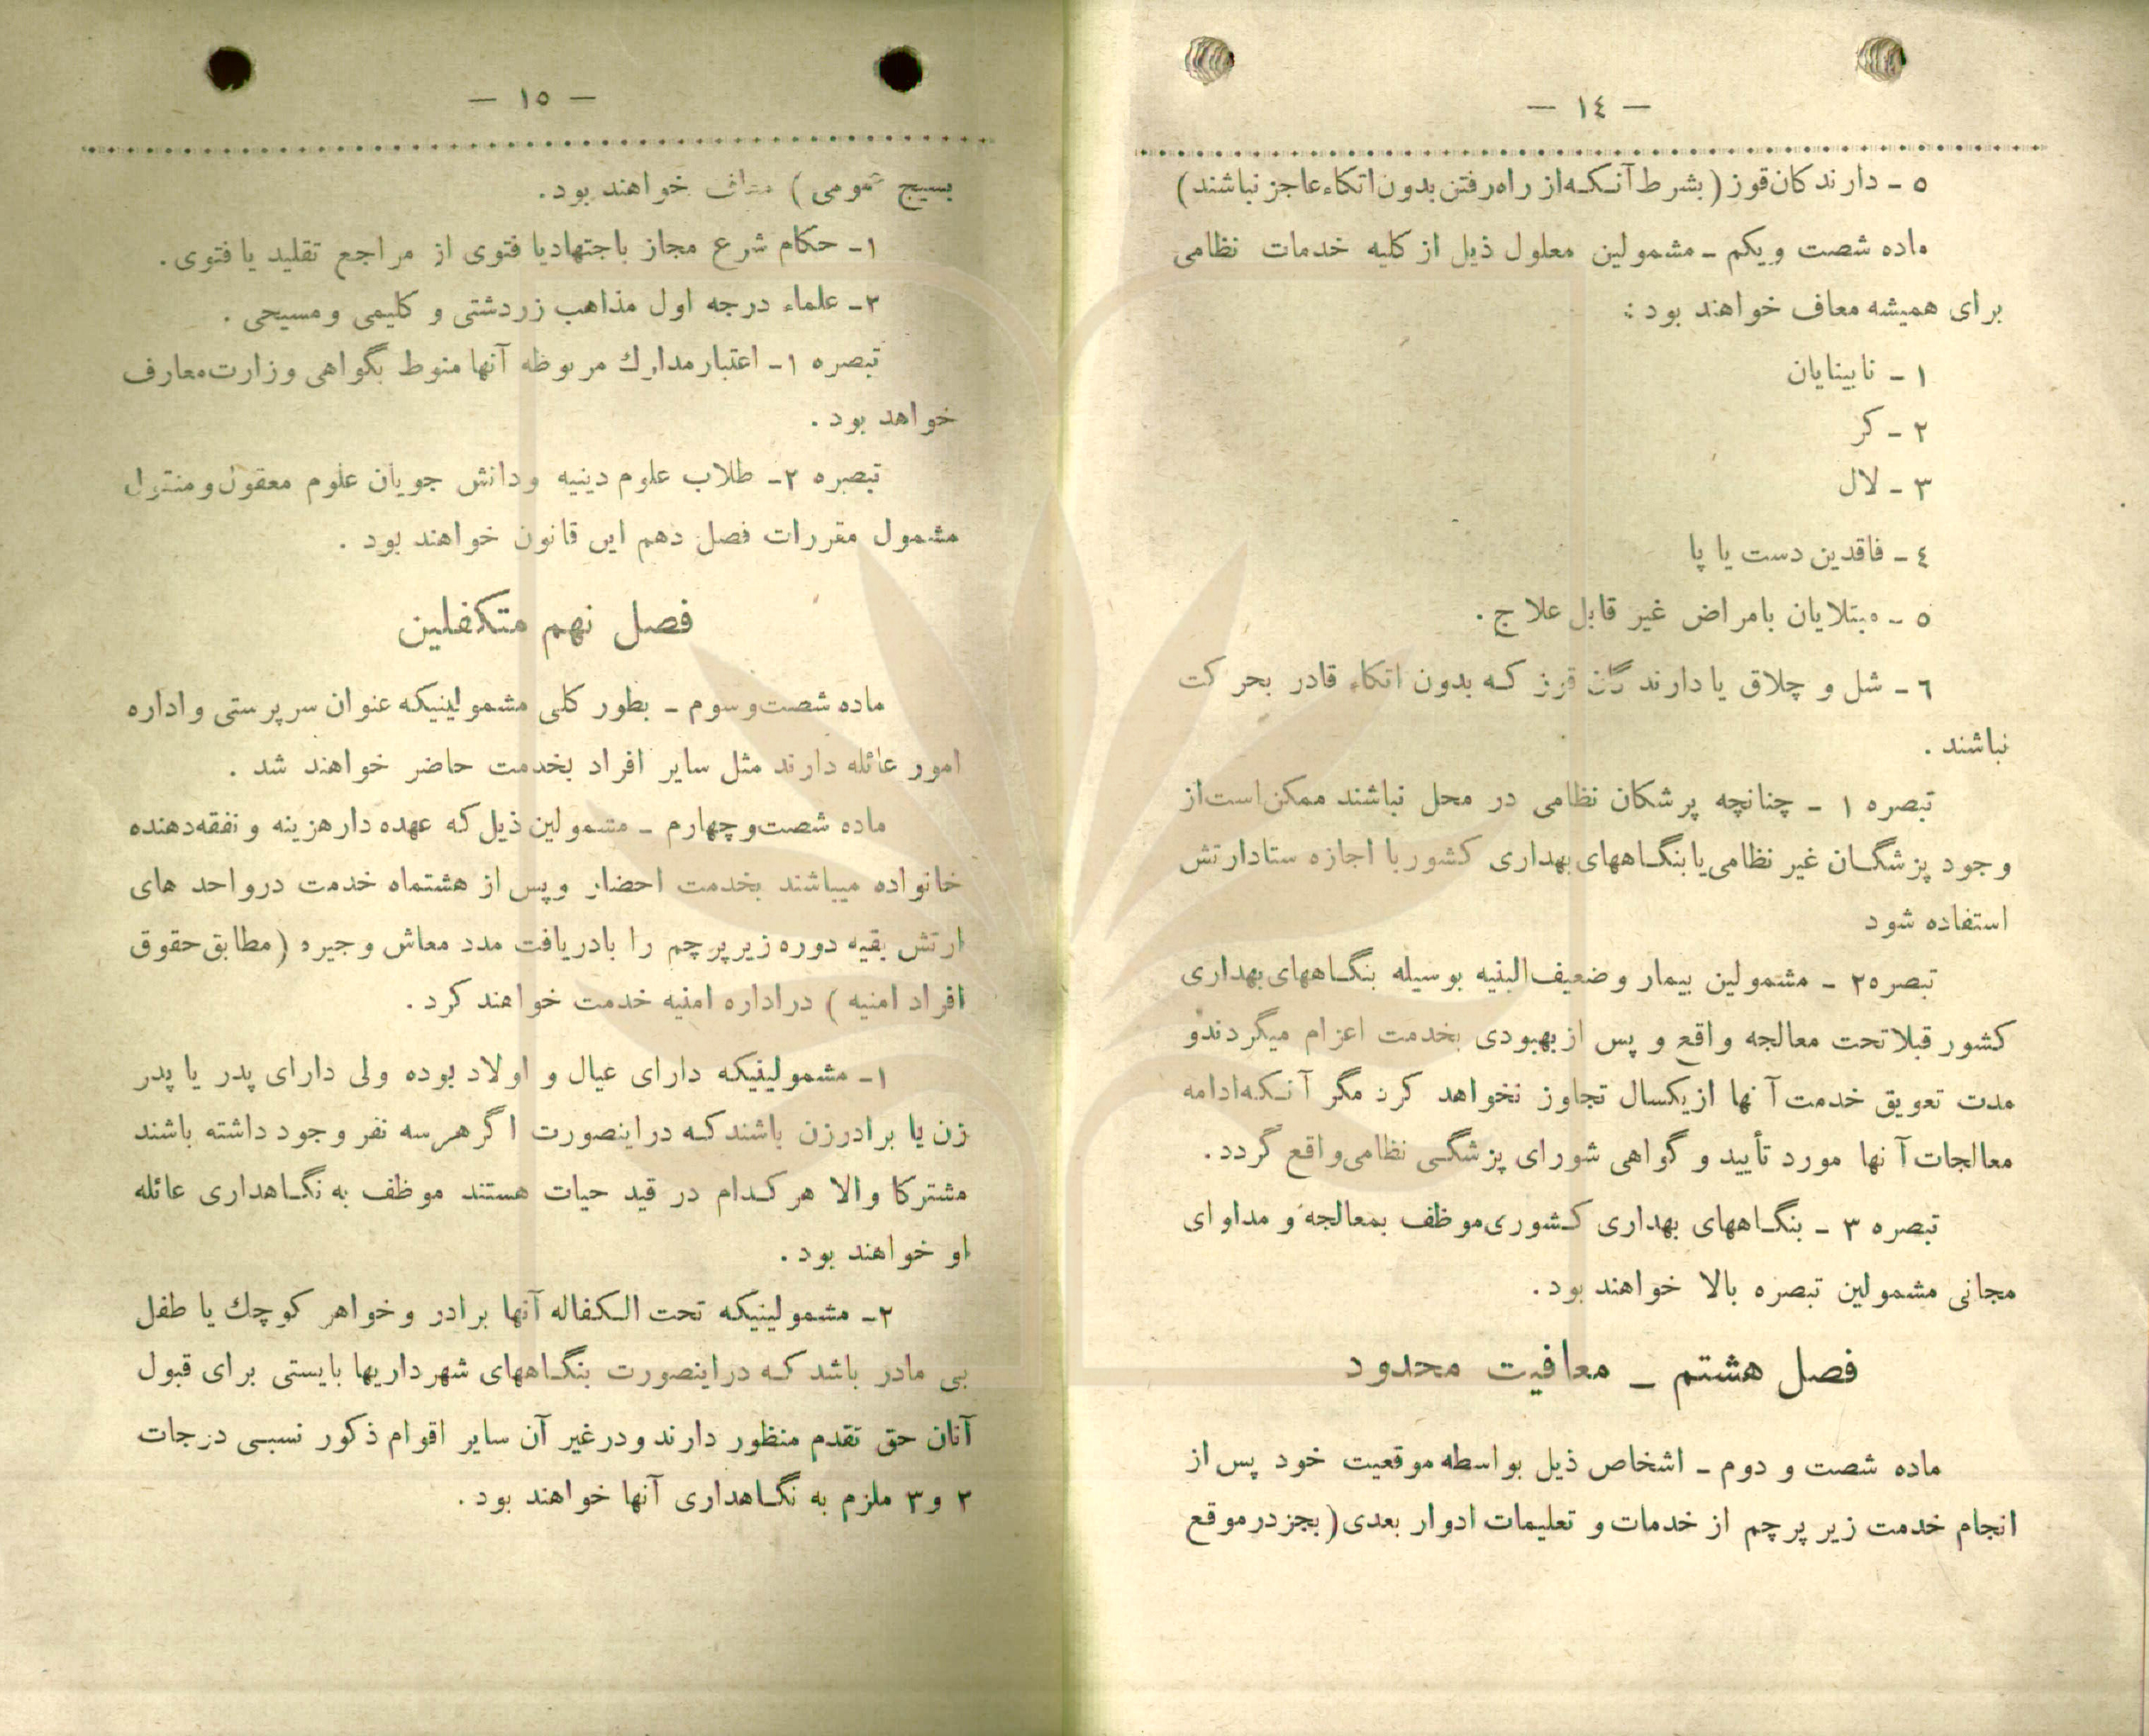 — ١٤ —
٥ ـ دارندگان قوز (بشرط آنکه از راه رفتن بدون اتکاء عاجز نباشند)
ماده شصت ویکم ـ مشمولین معلول ذیل از کلیه خدمات نظامی
برای همیشه معاف خواهند بود :
١ ـ نابینایان
٢ ـ کر
٣ ـ لال
٤ ـ فاقدین دست یا پا
٥ ـ مبتلایان بامراض غیر قابل علاج .
٦ ـ شل و چلاق یا دارندگان قوز که بدون اتکاء قادر بحرکت
نباشند .
تبصره ١ ـ چنانچه پرشکان نظامی در محل نباشند ممکن است از
وجود پزشگان غیر نظامی یا بنگاههای بهداری کشور با اجازه ستاد ارتش
استفاده شود
تبصره ٢ ـ مشمولین بیمار وضعیف البنیه بوسیله بنگاههای بهداری
کشور قبلا تحت معالجه واقع و پس از بهبودی بخدمت اعزام میگردند و
مدت تعویق خدمت آنها از یکسال تجاوز نخواهد کرد مگر آنکه ادامه
معالجات آنها مورد تأیید و گواهی شورای پزشگی نظامی واقع گردد .
تبصره ٣ ـ بنگاههای بهداری کشوری موظف بمعالجه و مداوای
مجانی مشمولین تبصره بالا خواهند بود .
فصل هشتم ـ معافیت محدود
ماده شصت و دوم ـ اشخاص ذیل بواسطه موقعیت خود پس از
انجام خدمت زیر پرچم از خدمات و تعلیمات ادوار بعدی (بجز در موقع
— ١٥ —
بسیج عمومی) معاف خواهند بود .
١ـ حکام شرع مجاز باجتهاد یا فتوی از مراجع تقلید یا فتوی .
٢ـ علماء درجه اول مذاهب زردشتی و کلیمی و مسیحی .
تبصره ١ـ اعتبار مدارك مربوطه آنها منوط بگواهی وزارت معارف
خواهد بود .
تبصره ٢ـ طلاب علوم دینیه و دانش جویان علوم معقول و منقول
مشمول مقررات فصل دهم این قانون خواهند بود .
فصل نهم متکفلین
ماده شصت و سوم ـ بطور کلی مشمولینیکه عنوان سرپرستی و اداره
امور عائله دارند مثل سایر افراد بخدمت حاضر خواهند شد .
ماده شصت و چهارم ـ مشمولین ذیل که عهده دار هزینه و نفقه دهنده
خانواده میباشند بخدمت احضار و پس از هشتماه خدمت در واحد های
ارتش بقیه دوره زیر پرچم را بادریافت مدد معاش و جیره (مطابق حقوق
افراد امنیه ) در اداره امنیه خدمت خواهند کرد .
١ـ مشمولینیکه دارای عیال و اولاد بوده ولی دارای پدر یا پدر
زن یا برادرزن باشند که در اینصورت اگر هر سه نفر وجود داشته باشند
مشترکا والا هر کدام در قید حیات هستند موظف به نگاهداری عائله
او خواهند بود .
٢ـ مشمولینیکه تحت الکفاله آنها برادر و خواهر کوچك یا طفل
بی مادر باشد که در اینصورت بنگاههای شهرداریها بایستی برای قبول
آنان حق تقدم منظور دارند و در غیر آن سایر اقوام ذکور نسبی درجات
٢ و ٣ ملزم به نگاهداری آنها خواهند بود .